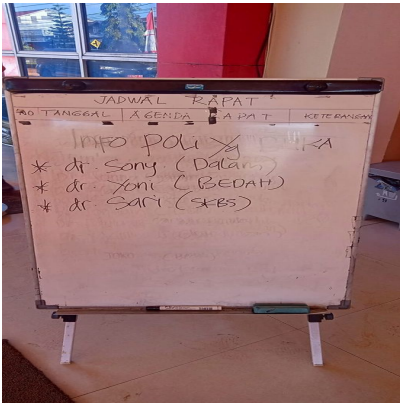 JADWAL RAPAT
NO TANGGAL AGENDA RAPAT KETERANGAN
Info POLi Yg
* dr. Sony (Dalam)
* dr. Yoni (BEDAH)
* dr. Sari (SKBS)